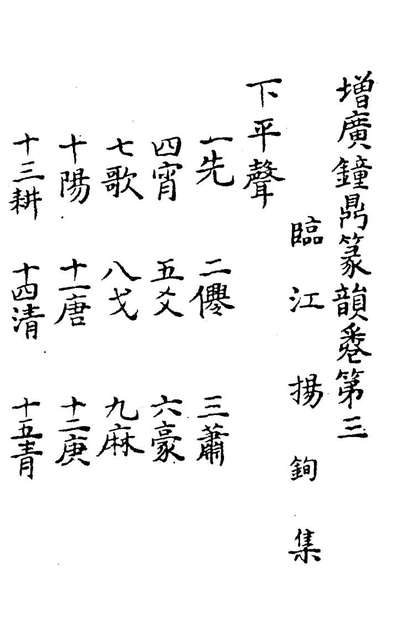 增廣鐘鼎篆韻卷第三
臨江揚鉤集
下平聲
一先 二僊 三蕭
四宵 五爻 六豪
七歌 八戈 九麻
十陽 十一唐 十二庚
十三耕 十四清 十五青